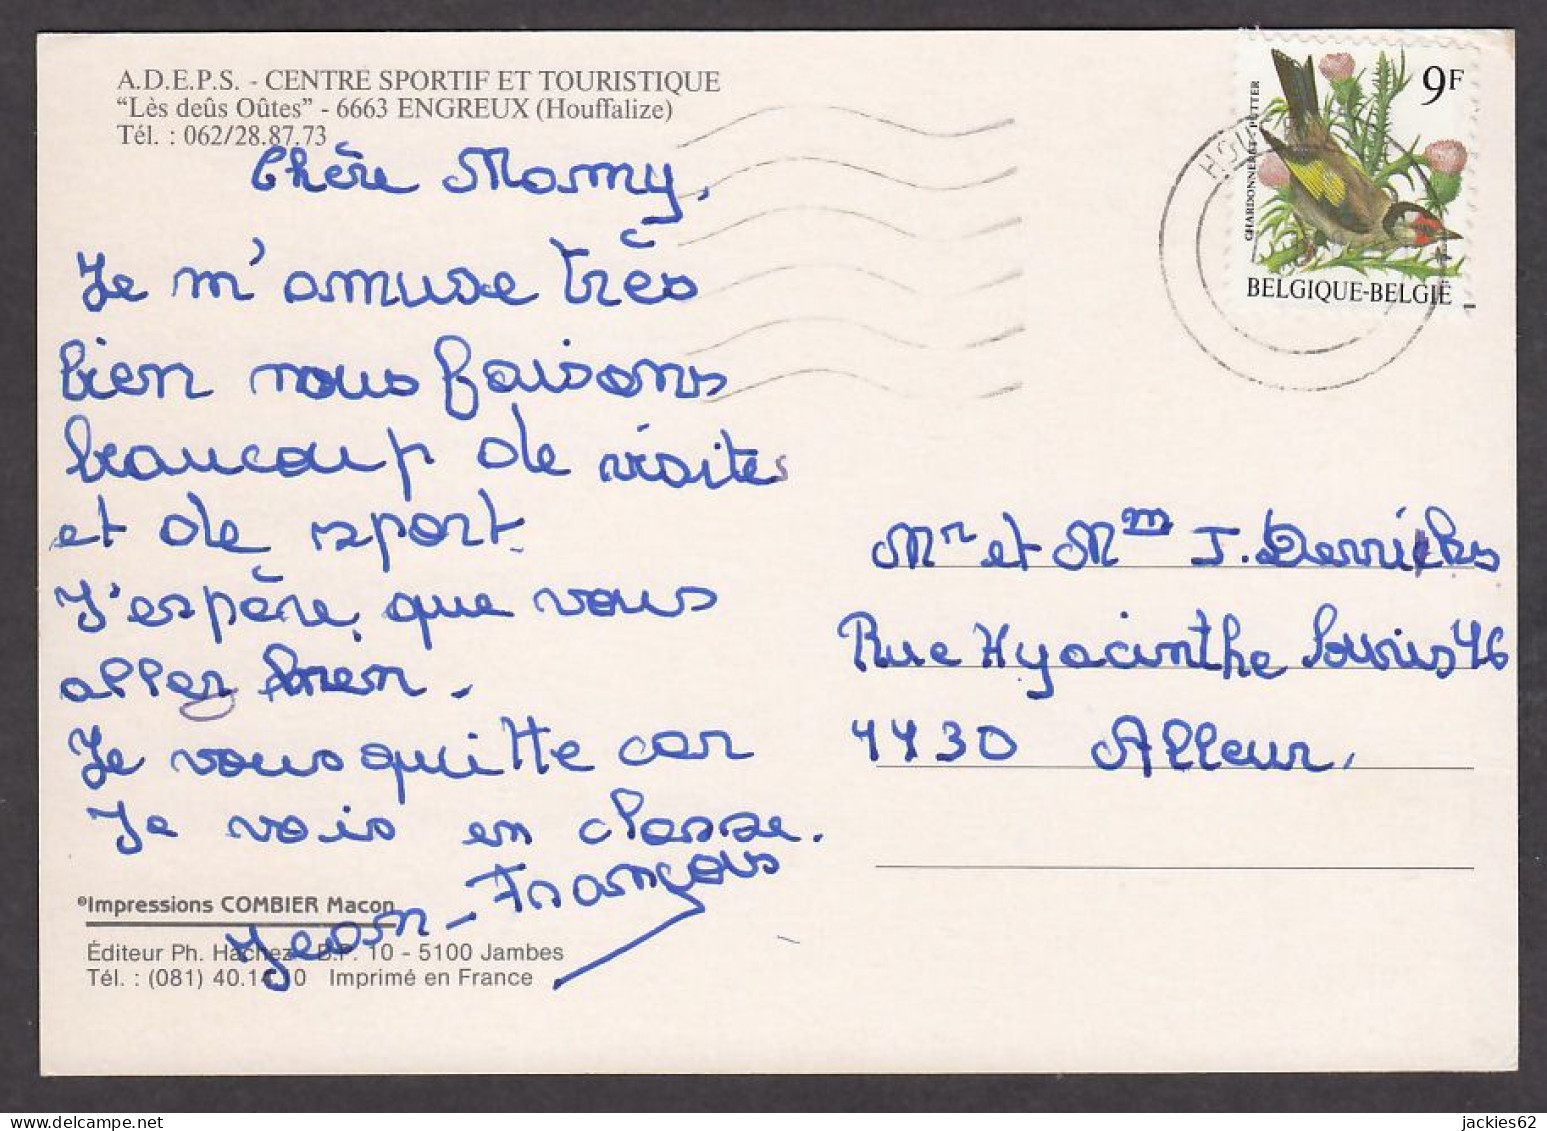 A.D.E.P.S. - CENTRE SPORTIF ET TOURISTIQUE
"Lès deûs Oûtes" - 6663 ENGREUX (Houffalize)
Tél. : 062/28.87.73
Chère Mamy,
Je m'amuse très
bien nous faisons
beaucoup de visites
et de sport.
J'espère, que vous
allez bien.
Je vous quitte car
Je vais en classe.
Jean-François
©Impressions COMBIER Macon
Éditeur Ph. Hachez - B.P. 10 - 5100 Jambes
Tél. : (081) 40.14.10 Imprimé en France
9F
CHARDONNERET - PUTTER
BELGIQUE-BELGIË
HOU
Mr et Mme J. Derricks
Rue Hyacinthe 46
4430 Alleur,
jackies62